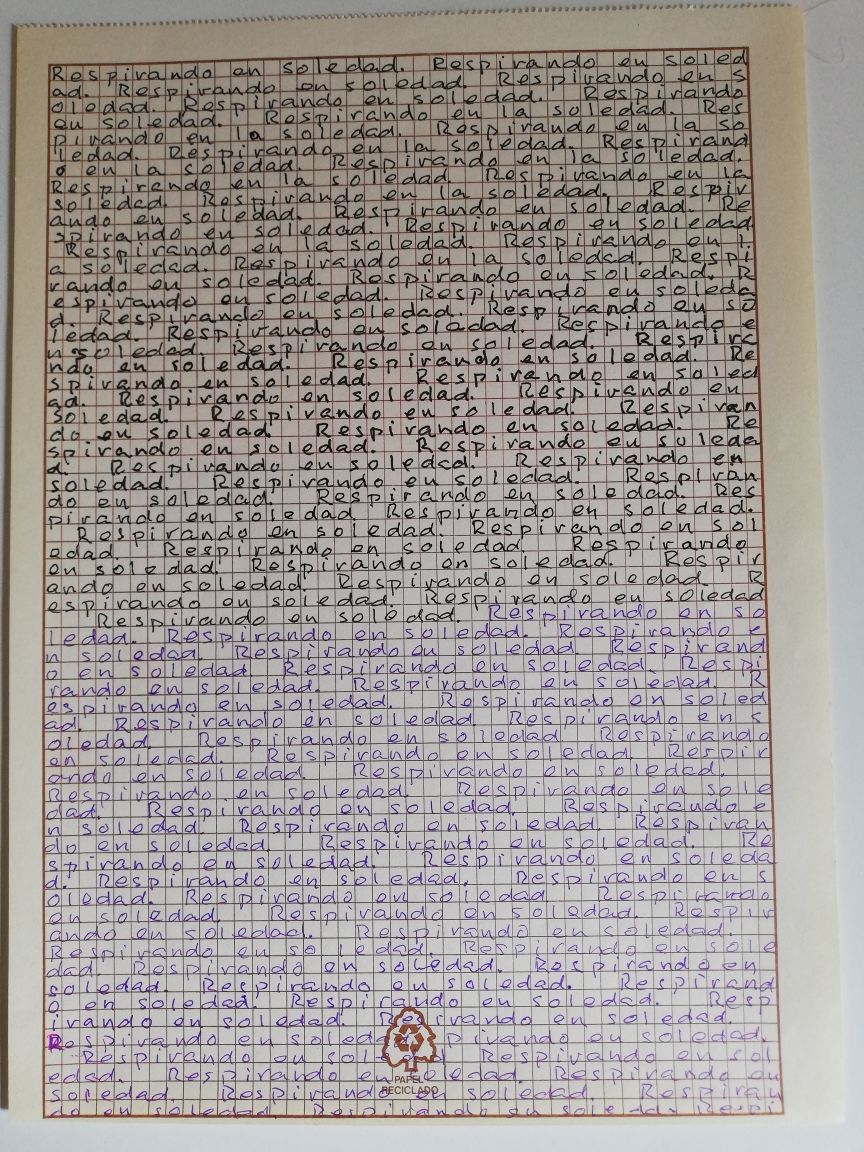 Respirando en soledad. Respirando en soled
ad. Respirando en soledad. Respirando en s
oledad. Respirando en soledad. Respirando
en soledad. Respirando en la soledad. Res
pirando en la soledad. Respirando en la so
ledad. Respirando en la soledad. Respirand
o en la soledad. Respirando en la soledad.
Respirando en la soledad. Respirando en la
soledad. Respirando en la soledad. Respir
ando en soledad. Respirando en soledad. Re
spirando en soledad. Respirando en soledad
Respirando en la soledad. Respirando en l
a soledad. Respirando en la soledad. Respi
rando en soledad. Respirando en soledad. R
espirando en soledad. Respirando en soleda
d. Respirando en soledad. Respirando en so
ledad. Respirando en soledad. Respirando e
n soledad. Respirando en soledad. Respira
ndo en soledad. Respirando en soledad. Re
spirando en soledad. Respirando en soled
ad. Respirando en soledad. Respirando en
soledad. Respirando en soledad. Respiran
do en soledad. Respirando en soledad. Re
spirando en soledad. Respirando en soleda
d. Respirando en soledad. Respirando en
soledad. Respirando en soledad. Respiran
do en soledad. Respirando en soledad. Res
pirando en soledad Respirando en soledad.
Respirando en soledad. Respirando en sol
edad. Respirando en soledad. Respirando
en soledad. Respirando en soledad. Respir
ando en soledad. Respirando en soledad. R
espirando en soledad. Respirando en soledad
Respirando en soledad. Respirando en so
ledad. Respirando en soledad. Respirando e
n soledad. Respirando en soledad. Respirand
o en soledad Respirando en soledad. Respi
rando en soledad. Respirando en soledad R
espirando en soledad. Respirando en soled
ad. Respirando en soledad. Respirando en s
oledad. Respirando en soledad Respirando
en soledad. Respirando en soledad Respir
ando en soledad. Respirando en soledad.
Respirando en soledad. Respirando en sole
dad. Respirando en soledad. Respirando e
n soledad. Respirando en soledad. Respiran
do en soledad. Respirando en soledad. Re
spirando en soledad. Respirando en soleda
d. Respirando en soledad. Respirando en s
oledad. Respirando en soledad Respirando
en soledad. Respirando en soledad. Respir
ando en soledad. Respirando en soledad.
Respirando en soledad. Respirando en sole
dad. Respirando en soledad. Respirando en
soledad. Respirando en soledad. Respirand
o en soledad. Respirando en soledad. Resp
irando en soledad. Respirando en soledad.
Respirando en soledad pirando en soledad.
Respirando en soledad Respirando en sol
edad. Respirando en soledad. Respirando en
soledad. Respirando en soledad. Respiran
do en soledad. Respirando en soledad. Respi
PAPEL
RECICLADO